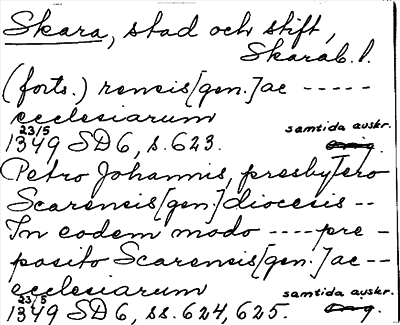 Skara, stad och stift,
Skarab. l.
(forts.) rensis[gen.]ac -----
ecclesiarum
23/5 samtida avskr.
1349 SD6, s.623. Orig.
Petro Johannis, presbytero
Scarensis[gen.]diocesis --
In eodem modo ----pre-
posito Scarensis[gen.]ac--
ecclesiarum
23/5 samtida avskr.
1349 SD6, ss.624, 625. Orig.